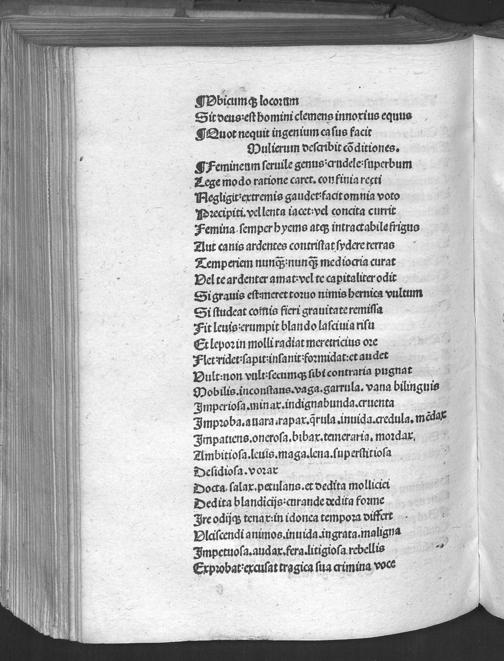 ¶Vbicumqꝫ locorum
Sit deus:est homini clemens innoxius equus
¶Quot nequit ingenium casus facit
Mulierum describit cōditiones.
¶Femineum seruile genus:crudele:superbum
Lege modo ratione caret. confinia recti
Negligit:extremis gaudet:facit omnia voto
Precipiti. vel lenta iacet:vel concita currit
Femina semper hyems atqꝫ intractabile frigus
Aut canis ardentes contristat sydere terras
Temperiem nunqꝫ:nunqꝫ mediocria curat
Vel te ardenter amat:vel te capitaliter odit
Si grauis est:meret toruo nimis hernica vultum
Si studeat comis fieri grauitate remissa
Fit leuis:erumpit blando lasciuia risu
Et lepor in molli radiat meretricius ore
Flet:ridet:sapit:insanit:formidat:et audet
Vult:non vult:secumqꝫ sibi contraria pugnat
Mobilis.inconstans.vaga.garrula. vana bilinguis
Imperiosa.minax.indignabunda.cruenta
Improba.auara.rapax.q̄rula.inuida.credula. mēdax
Impatiens.onerosa.bibax.temeraria. mordax.
Ambitiosa.leuis.maga.lena.superstitiosa
Desidiosa.vorax
Docta.salax.petulans.et dedita mollicici
Dedita blandicijs:curande dedita forme
Ire odijqꝫ tenax:in idonea tempora differt
Vlciscendi animos.inuida.ingrata.maligna
Impetuosa.audax.fera.litigiosa.rebellis
Exprobat:excusat tragica sua crimina voce